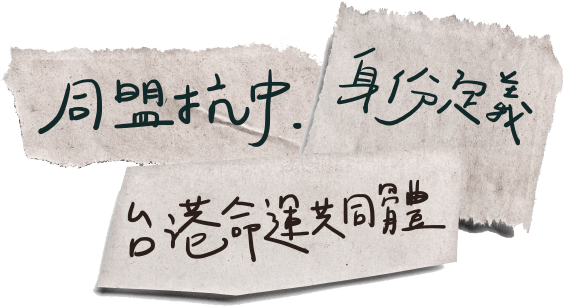 同盟抗中.
身份定義
台港命運共同體